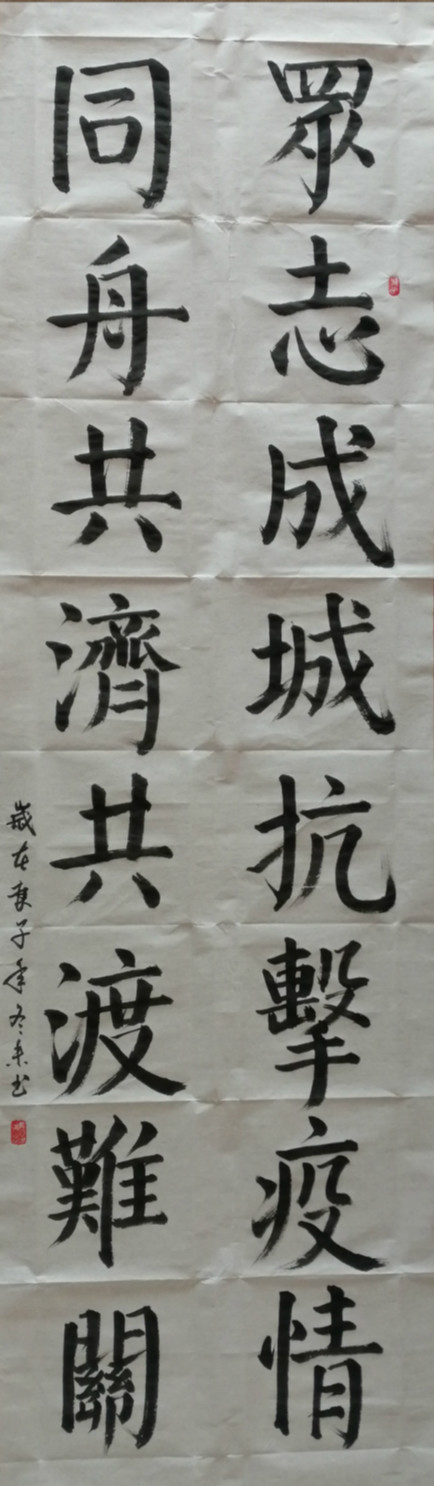 眾志成城抗擊疫情
同舟共濟共渡難關
歲在庚子年冬朱书